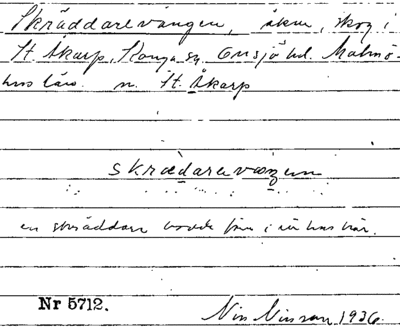 Skräddarevången, åker, skog i
St. Åkarp, Konga sn, Onsjö hd. Malmö-
hus län. n. St. Åkarp
skrædarevæŋen
en skräddare bodde förr i ett hus här.
Nr 5712.
Nils Nilsson 1926.